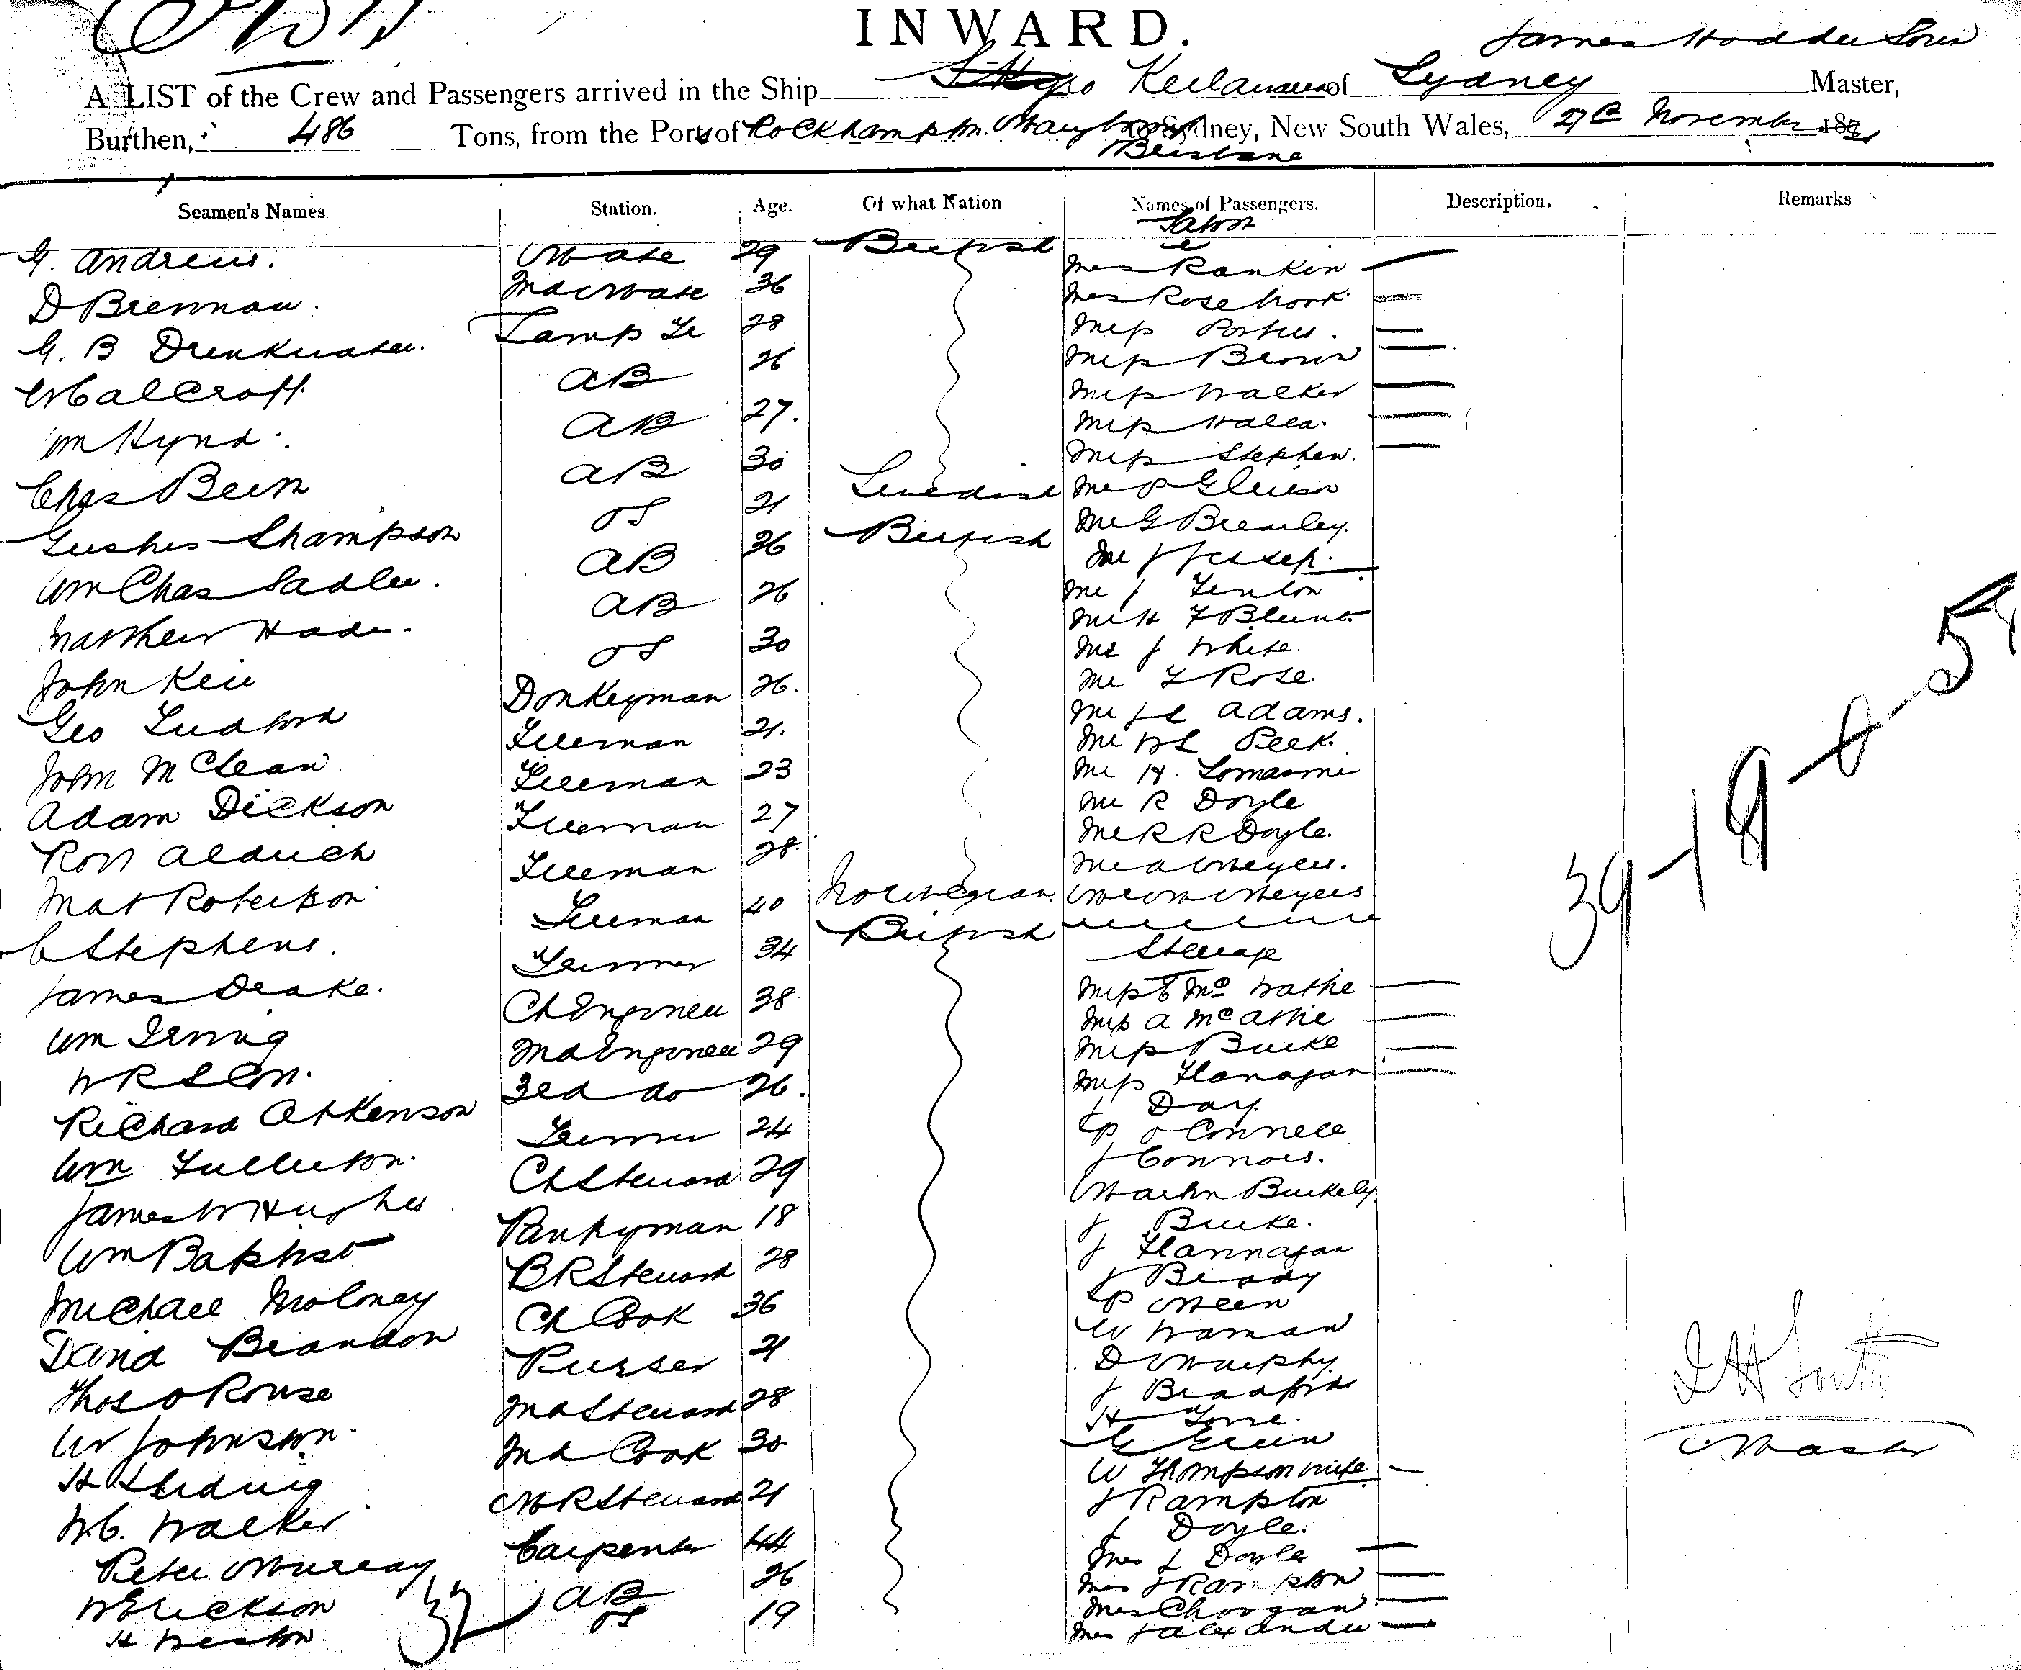 INWARD.
James
A LIST of the Crew and Passengers arrived in the Ship Keilawarra of Sydney Master,
Burthen, 486 Tons, from the Ports of Rockhampton Maryboro to Sydney, New South Wales, 27 November 188
Brisbane
Seamen's Names Station. Age. Of what Nation Names of Passengers. Description. Remarks
Saloon
G. Andrews. Mate 29 British Mrs Rankin
D Brennan. 2nd Mate 36 Mrs Rosebrook
G. B Drinkwater. Lamp Tr 28 Miss Porteus.
Calcroft AB 26 Miss Brown
Miss Walker
Wm Hynd AB 27. Miss
Miss Stephen.
Chas Bem AB 30 Swedish Mr P Gleeson
Shampson OS 21 British Mr G Bremley.
Wm Chas Sadler. AB 36 Mr J Jessep.
Mr J Fenton
Matthew AB 26 Mr H F Blunt
John Keir OS 30 Mr J White
Mr F Rose
Geo Ludford Donkeyman 26. Mr J C Adams.
John McClean Fireman 21. Mr W L Peek.
Adam Dickson Fireman 23 Mr H.
Mr R Doyle
Robt Aldrich Fireman 27 Mr R R Doyle.
Mat Robertson Fireman 28 Mr A Meyers.
C Stephens. Fireman 40 Norwegian Meyers
British
James Drake. Trimmer 34 Steerage
Wm Irving Ch Engineer 38 Miss E Mc
Miss A McAthie
2nd Engineer 29 Miss Burke
Richard Atkenson 3rd do 26. Miss Flanagan
J Day
Wm Fullerton. Trimmer 24 P O Connell
James W Hughes Ch Steward 29 J Connors.
Martin Buckely
Wm Baptist Pantryman 18 J Burke.
Michael Moloney BR Steward 28 J Flannagan
J Brady
David Brandon Ch Cook 36 P Meen
W Waman
Thos O Rouse Purser 21 D Murphy
W Johnson. 2nd Steward 28 J Bradford
H
H Ludwig 2nd Cook 30 G Green
W Thompson wife
W. C. Walker MR Steward 21 J Rampton
J Doyle.
Peter Murray Carpenter 44 Mrs J Doyle
W Erickson AB 26 Mrs J Rampton
Mrs
H Weston OS 19 Mrs J Alexander
32
39-19-0-58
Master